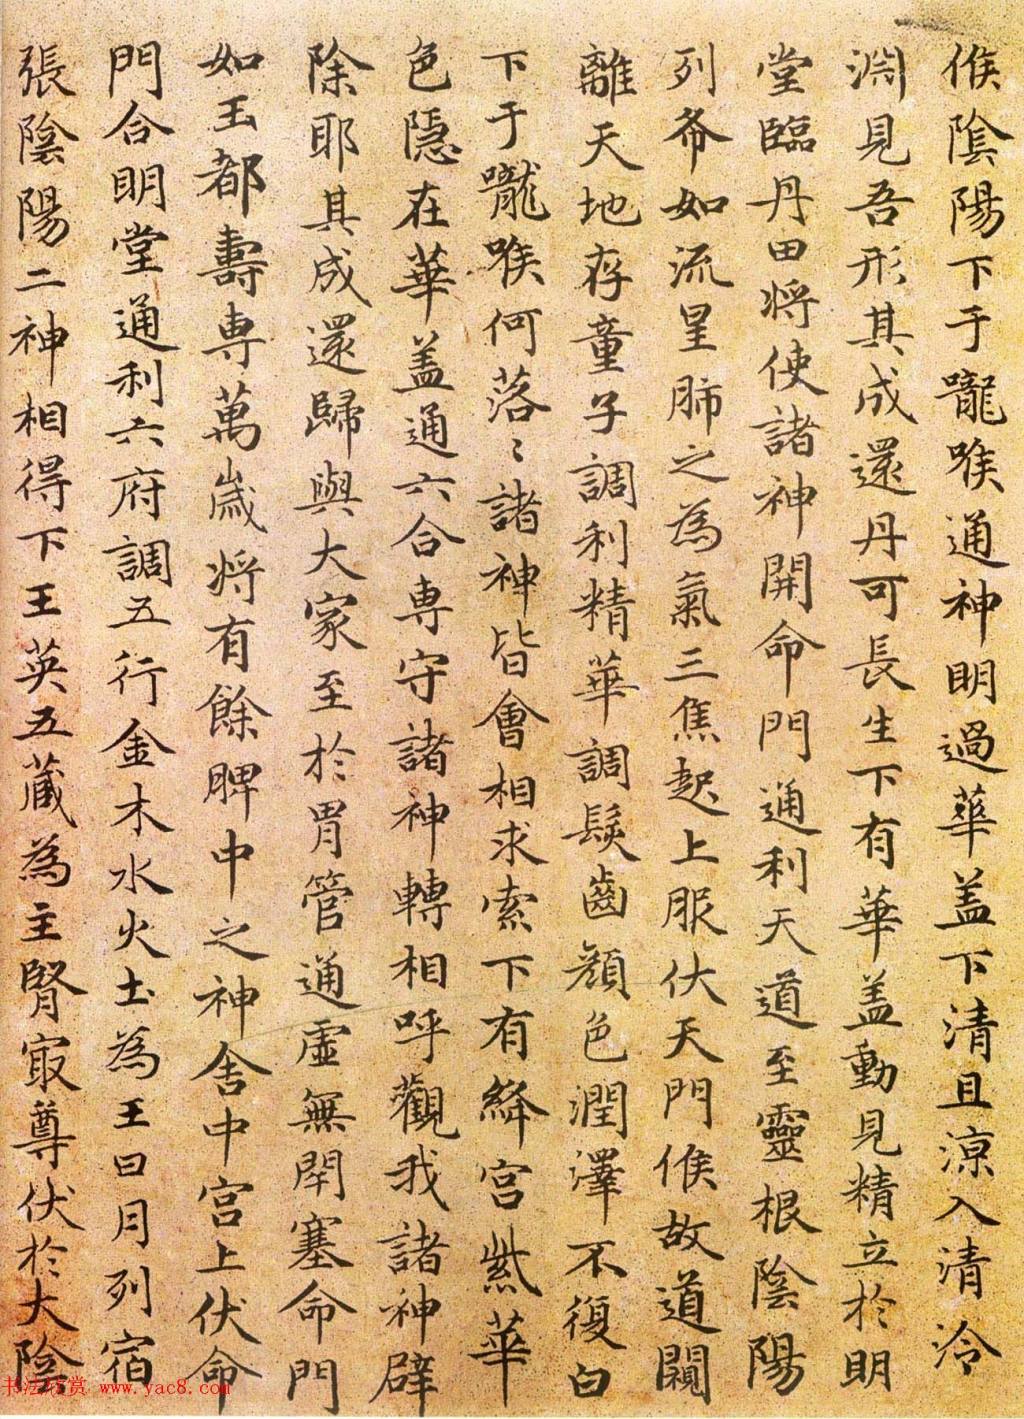 候陰陽下于嚨喉通神明過華盖下清且涼入清泠
淵見吾形其成還丹可長生下有華盖動見精立於明
堂臨丹田將使諸神開命門通利天道至靈根陰陽
列布如流星肺之為氣三焦起上服伏天門候故道闚
離天地存童子調利精華調髮齒顔色潤澤不復白
下于嚨喉何落〻諸神皆會相求索下有絳宫紫華
色隱在華盖通六合専守諸神轉相呼觀我諸神辟
除耶其成還歸與大家至於胃管通虛無閇塞命門
如玉都壽専萬歲将有餘脾中之神舍中宫上伏命
門合明堂通利六府調五行金木水火土為王日月列宿
張陰陽二神相得下玉英五藏為主腎冣尊伏於大陰
书法欣赏 www.yac8.com